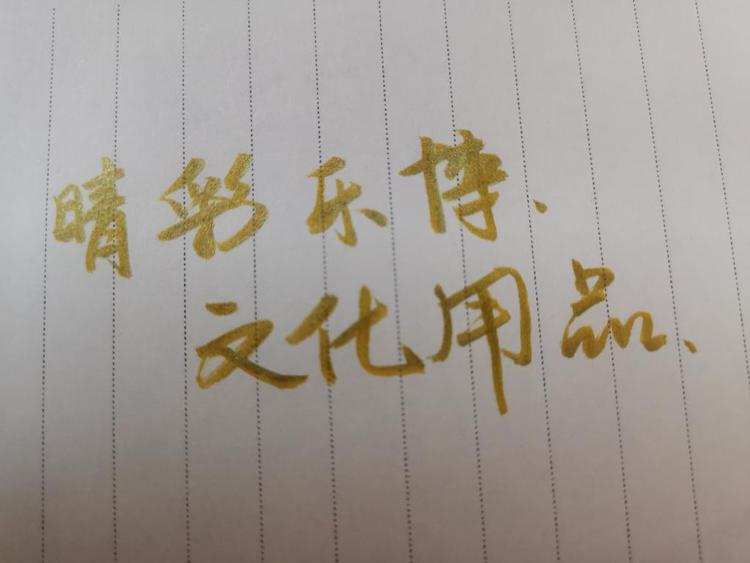 晴彩乐博、
文化用品、